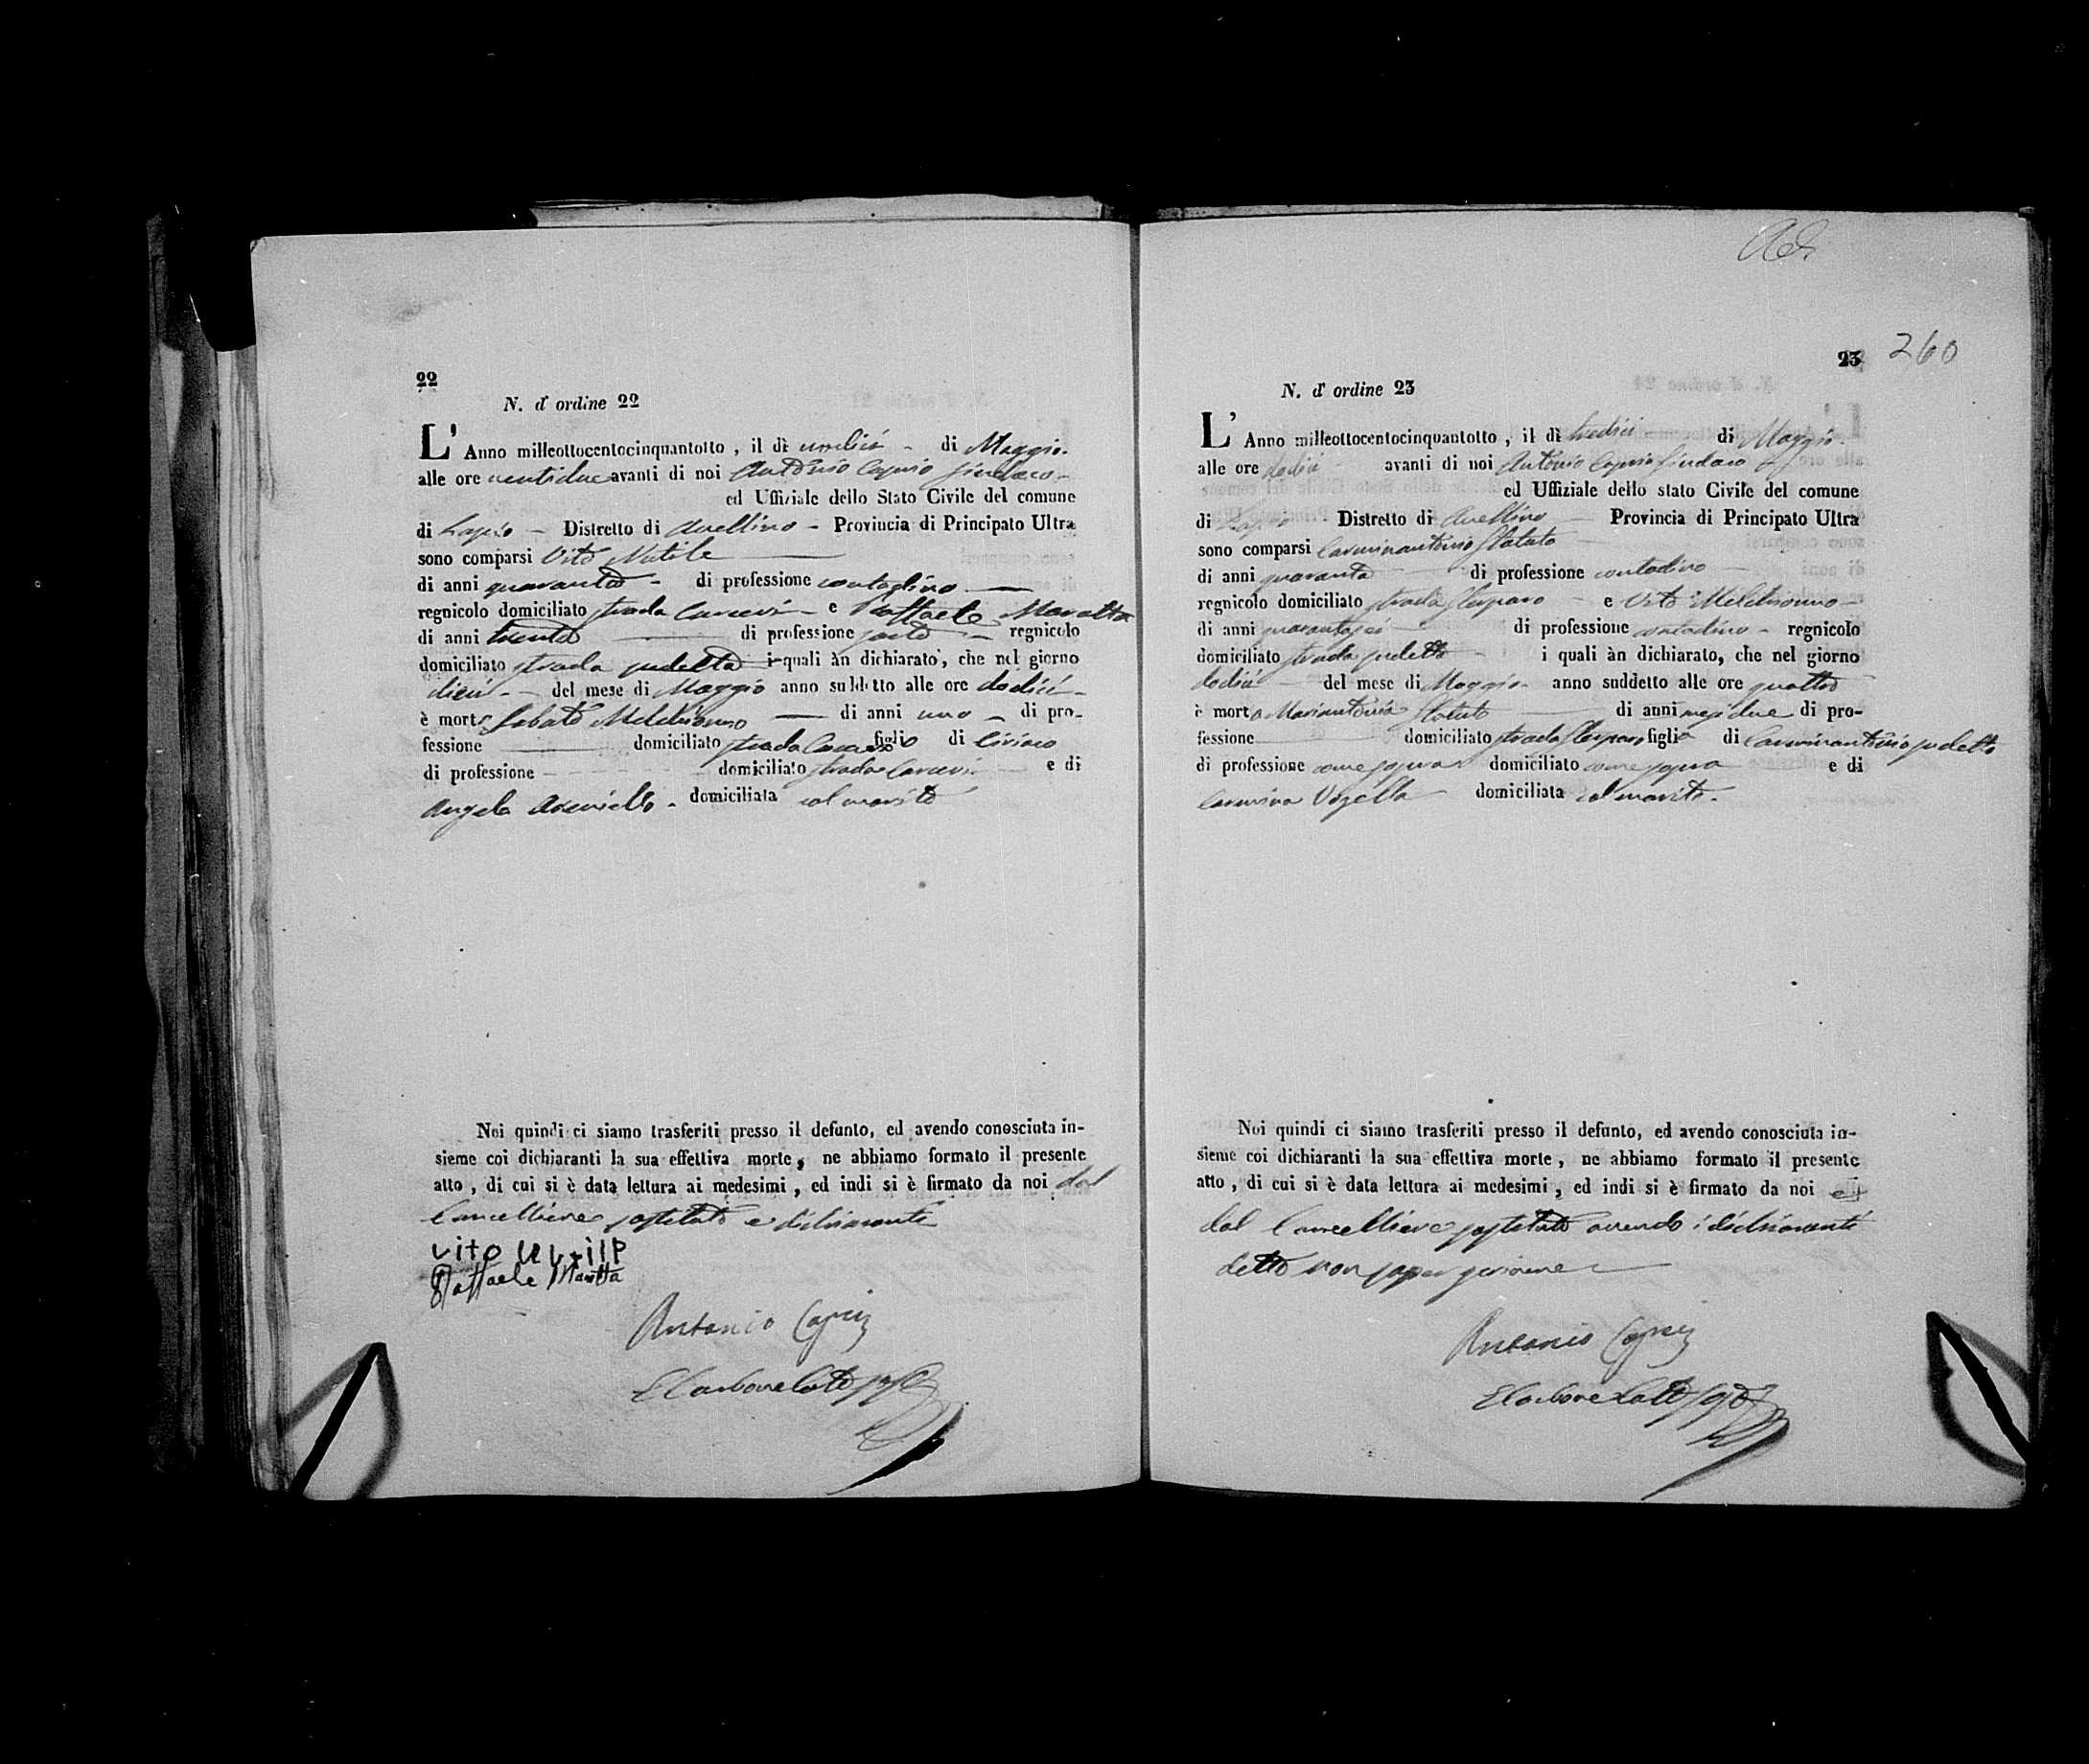 22
N. d' ordine 22
L' Anno milleottocentocinquantotto , il dì undici - di Maggio.
alle ore ventidue avanti di noi Antonio Caprio Sindaco -
ed Uffiziale dello Stato Civile del comune
di Lapio - Distretto di Avellino - Provincia di Principato Ultra
sono comparsi Vito
di anni quaranta - di professione contadino
regnicolo domiciliato strada e Raffaele
di anni trenta di professione sarto - regnicolo
domiciliato strada sudetta i quali àn dichiarato, che nel giorno
dieci - del mese di Maggio anno suddetto alle ore dodici -
è morto Sabato Melchionno di anni uno - di pro-
fessione domiciliato strada figlio di Ciriaco
di professione domiciliato strada e di
Angela - domiciliata col marito
Noi quindi ci siamo trasferiti presso il defunto, ed avendo conosciuta in-
sieme coi dichiaranti la sua effettiva morte, ne abbiamo formato il presente
atto , di cui si è data lettura ai medesimi , ed indi si è firmato da noi dal
Cancelliere sostituto e dichiaranti
Vito
Raffaele
Antonio Caprio
260
23
N. d' ordine 23
L' Anno milleottocentocinquantotto , il dì tredici di Maggio.
alle ore dodici avanti di noi Antonio Caprio Sindaco
ed Uffiziale dello stato Civile del comune
di Lapio Distretto di Avellino Provincia di Principato Ultra
sono comparsi Carminantonio Statuto
di anni quaranta di professione contadino
regnicolo domiciliato strada e Vito Melchionno -
di anni quarantasei di professione contadino - regnicolo
domiciliato strada sudetta - i quali àn dichiarato, che nel giorno
dodici del mese di Maggio - anno suddetto alle ore quattro
è morta Mariantonia Statuto di anni mesi due di pro-
fessione domiciliato strada figlia di Carminantonio sudetto
di professione come sopra domiciliato come sopra e di
Carmina domiciliata col marito.
Noi quindi ci siamo trasferiti presso il defunto, ed avendo conosciuta in-
sieme coi dichiaranti la sua effettiva morte , ne abbiamo formato il presente
atto , di cui si è data lettura ai medesimi , ed indi si è firmato da noi e
dal Cancelliere sostituto avendo i dichiaranti
detto non saper scrivere
Antonio Caprio